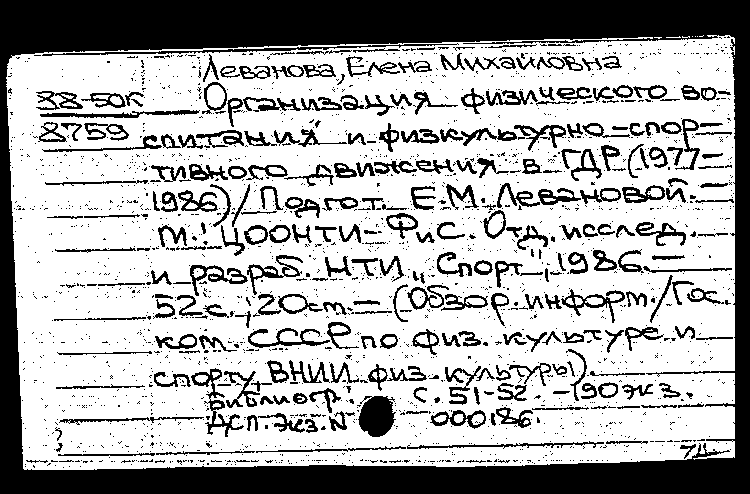 Леванова, Елена Михайловна
88-50К Организация физического во-
8759 спитания и физкультурно-спор-
тивного движения в ГДР (1977-
1986) / Подгот. Е.М. Левановой. -
М.: ЦООНТИ-ФиС. Отд. исслед.
и разраб. НТИ „Спорт", 1986. -
52 с.; 20 cm. - (Обзор. информ. / Гос.
ком. СССР по физ. культуре и
спорту, ВНИИ физ. культуры).
Библиогр.: с. 51-52. - 190 экз.
ДСП. Экз. N 000186.